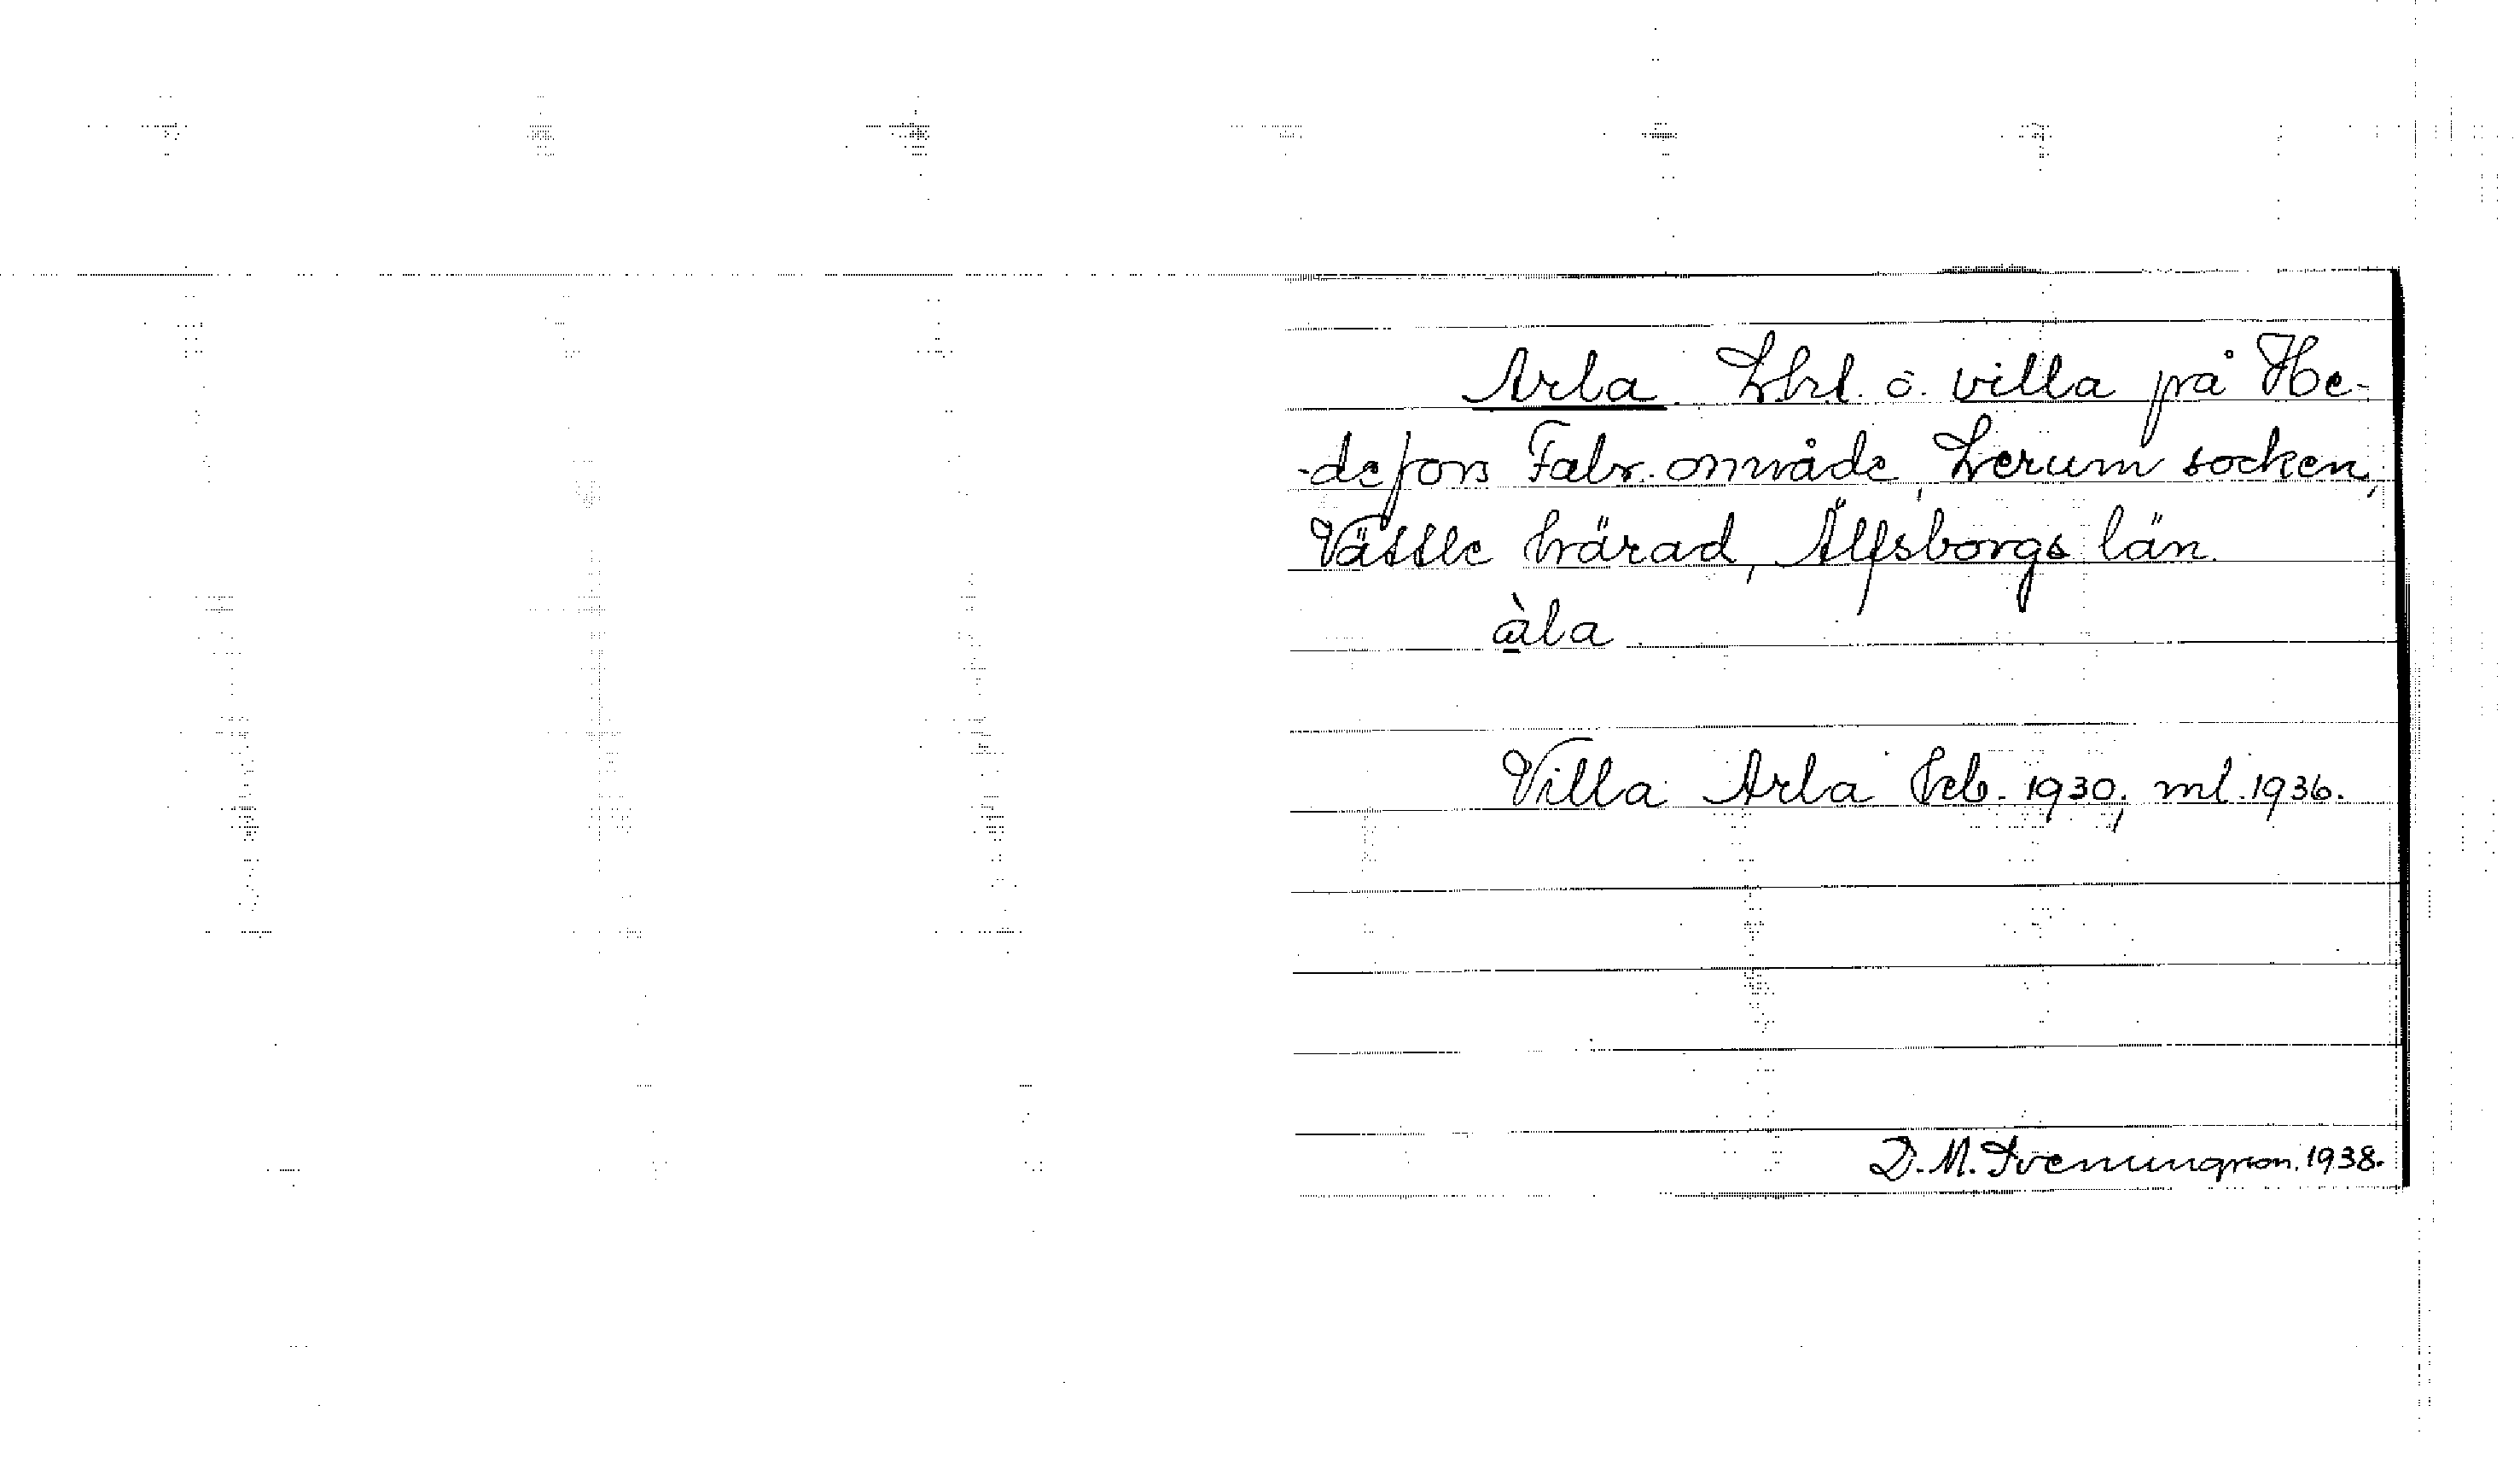 Arla. Lht. o. villa på He-
-defors Fabr. område, Lerum socken,
Vättle härad, Älfsborgs län.
àla
Villa Arla hcb. 1930, ml. 1936.
D. M. Svenungson. 1938.